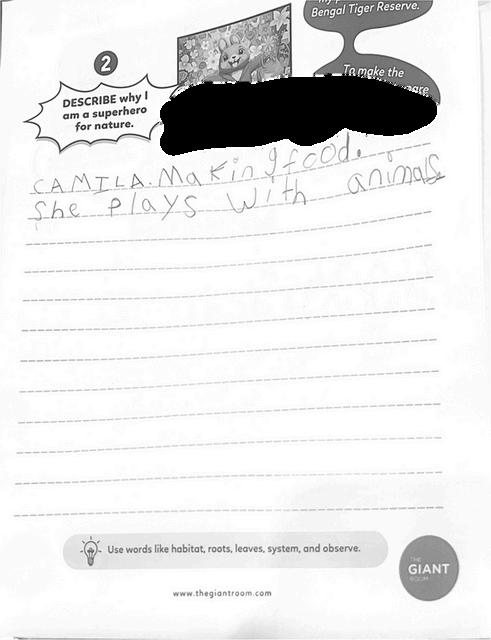 Bengal Tiger Reserve.
To make the
2
DESCRIBE why I
am a superhero
for nature.
CAMILA. Making food.
She plays with animals
Use words like habitat, roots, leaves, system, and observe.
THE
GIANT
ROOM
www.thegiantroom.com